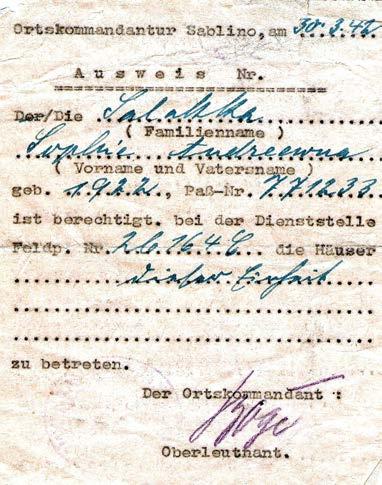 Ortskommandantur Sablino, am 30.3.42
Ausweis Nr.
Der/Die Salakka
( Familienname )
Sophie Andreewna
( Vorname und Vatersname )
geb. 1922, Paß-Nr. 771233
ist berechtigt. bei der Dienststelle
Feldp. Nr. 26164 C die Häuser
dieser Einheit
zu betreten.
Der Ortskommandant :
Oberleuthant.